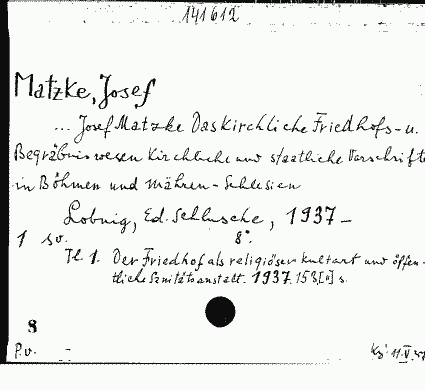 141612
Matzke, Josef
... Josef Matzke Das Kirchliche Friedhofs- u.
Begräbniswesen Kirchliche und staatliche Vorschrifte
in Böhmen und Mähren-Schlesien
Lobnig, Ed. Schlusche, 1937-
1 sv. 8°.
Tl. 1. Der Friedhof als religiöser kultort und öffen-
tliche Sanitätsanstalt. 1937. 153, [II] s.
8
P.v.